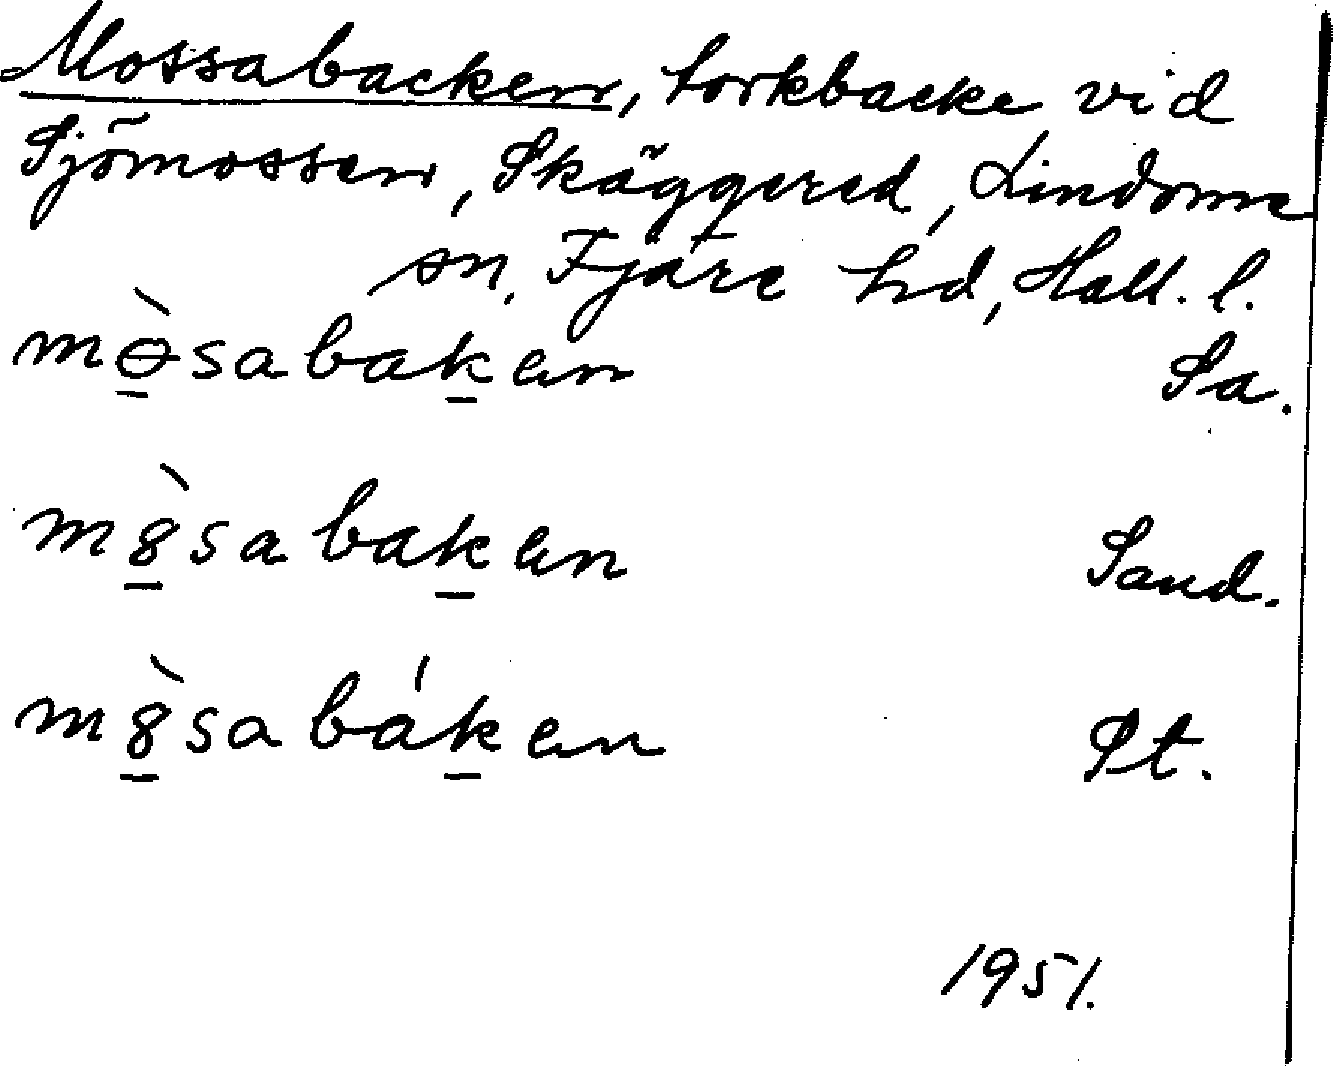 Mossabacken, torkbacke vid
Sjömossen, Skäggered, Lindome
sn, Fjäre hd, Hall. l.
mɵ̀sabaken Sa.
m8̀sabaken Sand.
m8̀sabáken Pt.
1951.